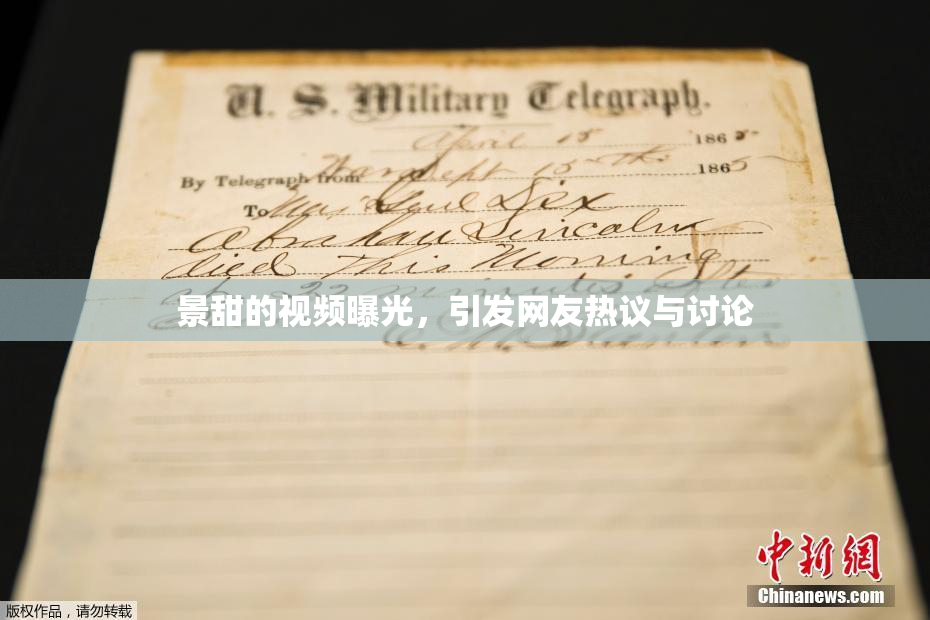 U. S. Military Telegraph.
April 15 1865
By Telegraph from War Dept 15th 1865
To Maj Genl Dix
Abraham Lincoln
died This Morning
at 22 minutes after
景甜的视频曝光，引发网友热议与讨论
中新网
Chinanews.com
版权作品，请勿转载